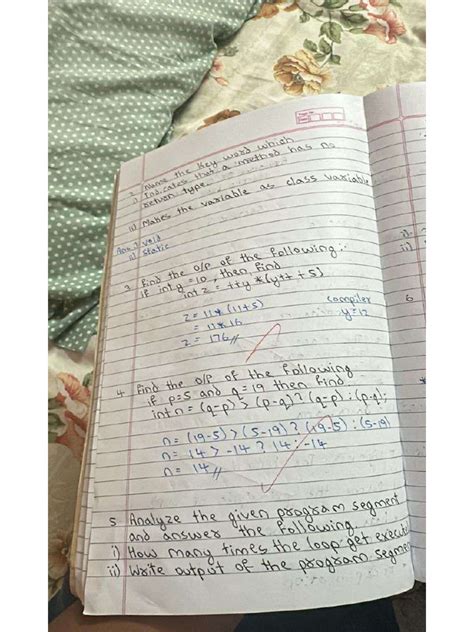 2. Name the key word which
i) Indicates that a method has no
return type.
ii) Makes the variable as class variable
Ans: i) void
ii) static
3 Find the o/p of the following:-
if int y=10, then find
int z = ++y *(y++ +5)
z = 11*(11+5) compiler
= 11*16 y=12
z = 176//
6
4. Find the o/p of the following
if p=5 and q=19 then find
int n = (q-p) > (p-q)? (q-p) : (p-q);
n= (19-5) > (5-19) ? (19-5) : (5-19)
n= 14 > -14 ? 14 : -14
n= 14//
5 Analyze the given program segment
and answer the following.
i) How many times the loop get execut
ii) Write output of the program segmen